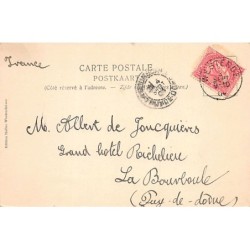 France
CARTE POSTALE
POSTKAART
(Côté réservé à l'adresse.
WESTENDE
M. Albert de Joncquières
Grand hôtel Richelieu
La Bourboule
(Puy-de-Dôme)